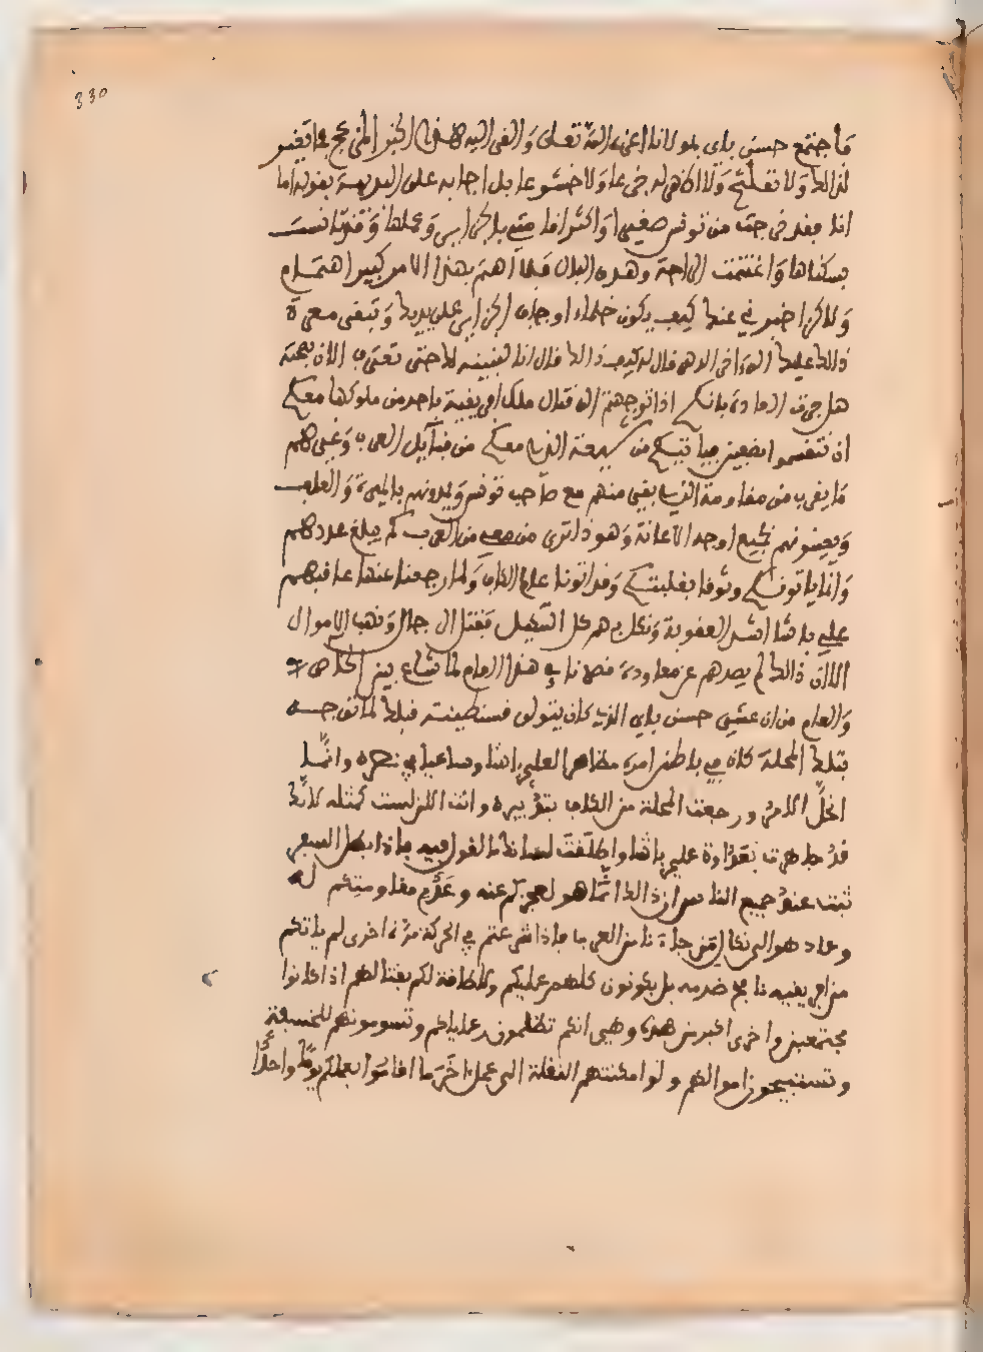 330
فاجتمع حسن باي بمولانا اعزه الله تعلى والقى اليه هذا الخبر المزعج فما تغير
لذالك ولا تقلق ولا اكفهر جزعا ولا خشوعا بل اجابه على البديهة بقوله اما
انا فقد خرجت من تونس صغيرا واكثر اقامتي بالجزاير وعملها وقد تانست
بسكناها واغتنمت الراحة وهذه البلاد فلا اهتم بهذا الامر كبير اهتمام
ولاكن اخبرني عنك كيف يكون خلاء اوجاق الجزاير على يديك وتبقى معرة
ذالك عليك الى اخر الدهر قال له كيف ذالك قال انا لنبينه لك حتى تعترف الان بصحته
هل جرت العادة بانكم اذا توجهتم الى قتال ملك افريقية باحد من ملوكها معكم
ان تنقسم فيتبعكم من شيعة الذي معكم من قبايل العرب وغيرهم
ما يقرب من مقاومة الذي بقي منهم مع صاحب تونس ويمدونهم بالميرة والعلف
ويعينونهم بجميع اوجه الاعانة وهو ذا ترى من معي من العرب كم يبلغ عددهم
وانما ياتونكم وثوقا بغلبتكم وقد اتونا على الكاف ولما رجعنا عنها عاقبهم
علي باشا اشد العقوبة ونكل بهم كل التنكيل فقتل الرجال ونهب الاموال
الا ان ذالك لم يصدهم عن معاودة نصرنا في هذا العام لما شاع بين الخاص
والعام من ان عشي حسن باي الذي كان يتولى قسنطينة قبلك لما خرج
بتلك المحلة كان في باطن امره مظاهرا لعلي باشا وساعيا في نصره وانما
انحل الامر ورجعت المحلة من الكاف بتدبيره وانت اللا لست كمثله لانك
قد جاهرت بعداوة علي باشا واطلقت لسانك بالقول فيه فاذا بطل السفر
ثبت عند جميع الناس ان ذالك انما هو لعجزكم عنه وعدم مقاومتكم له
وعاد هو الى نكال من جاءنا من العرب فاذا شرعتم في الحركة مرة اخرى لم ياتكم
من افريقية نافخ ضرمه بل يكونون كلهم عليكم ولا طاقة لكم بقتالهم اذا كانوا
مجتمعين واخرى اكبر من هذه وهي انكم تظلمون رعاياكم وتسومونهم الخسف
وتستبيحون اموالهم ولو امكنتهم النقلة الى عمل اخر ما اقاموا بعملكم يوما واحدا